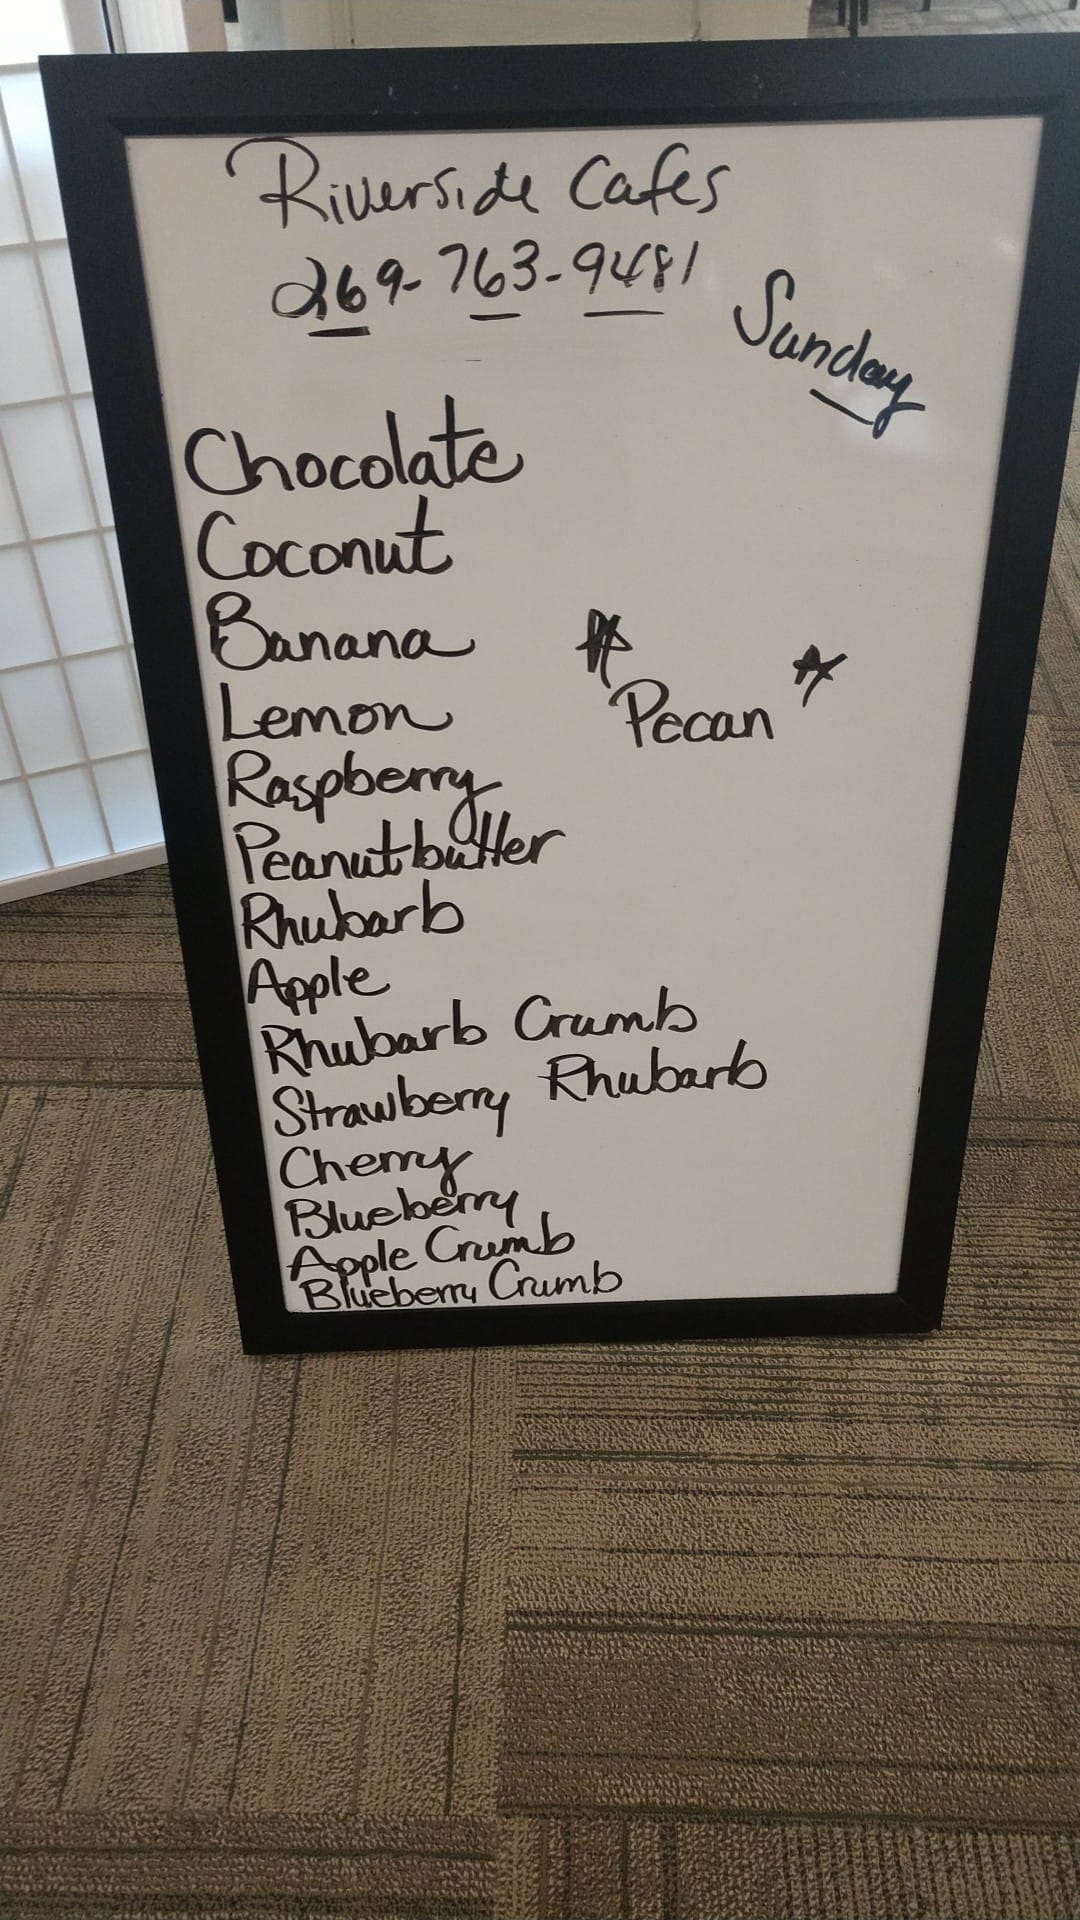 Riverside Cafes
269-763-9481
Sunday
Chocolate
Coconut
Banana
Lemon
Pecan
Raspberry
Peanutbutter
Rhubarb
Apple
Rhubarb Crumb
Strawberry Rhubarb
Cherry
Blueberry
Apple Crumb
Blueberry Crumb